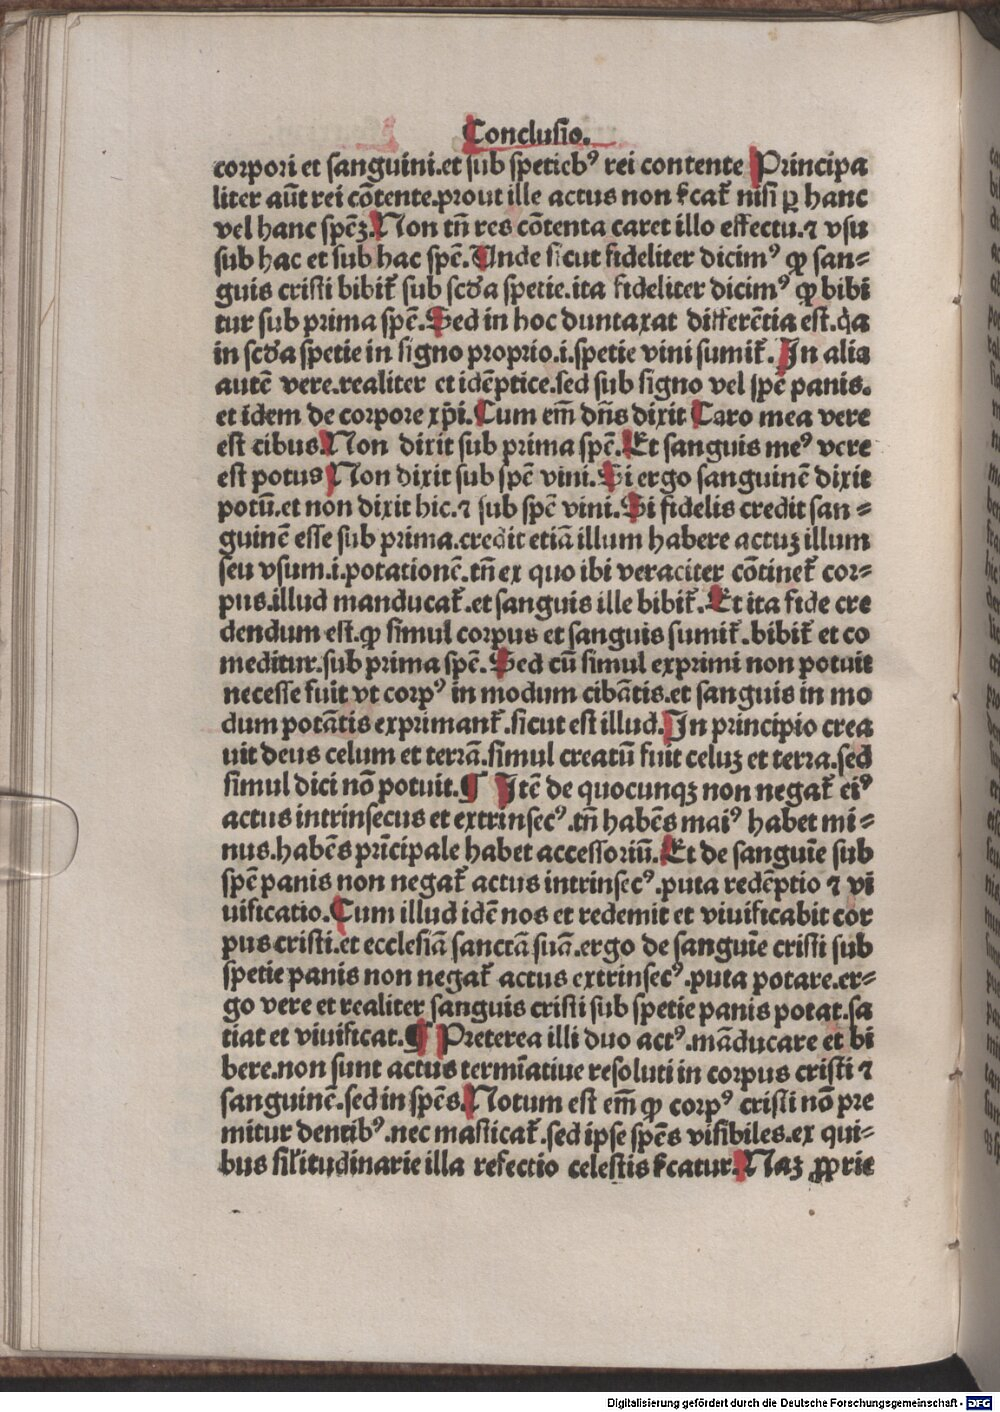 Conclusio.
corpori et sanguini.et sub spetieb⁹ rei contente Principa
liter aūt rei cōtente.prout ille actus non ẜcat᷑ nisi ꝑ hanc
vel hanc spēꝫ.Non tñ res cōtenta caret illo effectu.⁊ vsu
sub hac et sub hac spē.Unde sicut fideliter dicim⁹ ꝙ san⸗
guis cristi bibit᷑ sub scḋa spetie.ita fideliter dicim⁹ ꝙ bibi
tur sub prima spē.Sed in hoc duntaxat differētia est.q̇a
in scḋa spetie in signo proprio.i.spetie vini sumit᷑. In alia
autē vere.realiter et idēptice.sed sub signo vel spē panis.
et idem de corpore xp̄i.Cum em̄ dn̄s dixit Caro mea vere
est cibus.Non dixit sub prima spē.Et sanguis me⁹ vere
est potus Non dixit sub spē vini.Si ergo sanguinē dixit
potū.et non dixit hic.⁊ sub spē vini.Si fidelis credit san⸗
guinē esse sub prima.credit etiā illum habere actuꝫ illum
seu vsum.i.potationē.tñ ex quo ibi veraciter cōtinet᷑ cor⸗
pus.illud manducat᷑.et sanguis ille bibit᷑.Et ita fide cre
dendum est.ꝙ simul corpus et sanguis sumit᷑.bibit᷑ et co
meditur.sub prima spē.Sed cū simul exprimi non potuit
necesse fuit vt corp⁹ in modum cibātis.et sanguis in mo
dum potātis exprimant᷑.sicut est illud.In principio crea
uit deus celum et terrā.simul creatū fuit celuꝫ et terra.sed
simul dici nō potuit.¶ Itē de quocunqꝫ non negat᷑ ei⁹
actus intrinsecus et extrinsec⁹.tñ habēs mai⁹ habet mi⸗
nus.habēs prīcipale habet accessoriū.Et de sanguīe sub
spē panis non negat᷑ actus intrinsec⁹.puta redēptio ⁊ vi
uificatio.Cum illud idē nos et redemit et viuificabit cor
pus cristi.et ecclesiā sanctā suā.ergo de sanguīe cristi sub
spetie panis non negat᷑ actus extrinsec⁹.puta potare.er⸗
go vere et realiter sanguis cristi sub spetie panis potat.sa
tiat et viuificat.¶ Preterea illi duo act⁹.māducare et bi
bere.non sunt actus termīatiue resoluti in corpus cristi ⁊
sanguinē.sed in spēs.Notum est em̄ ꝙ corp⁹ cristi nō pre
mitur dentib⁹.nec masticat᷑.sed ipse spēs visibiles.ex qui⸗
bus sil'itudinarie illa refectio celestis ẜcatur.Naꝫ ꝓprie
Digitalisierung gefördert durch die Deutsche Forschungsgemeinschaft - DFG